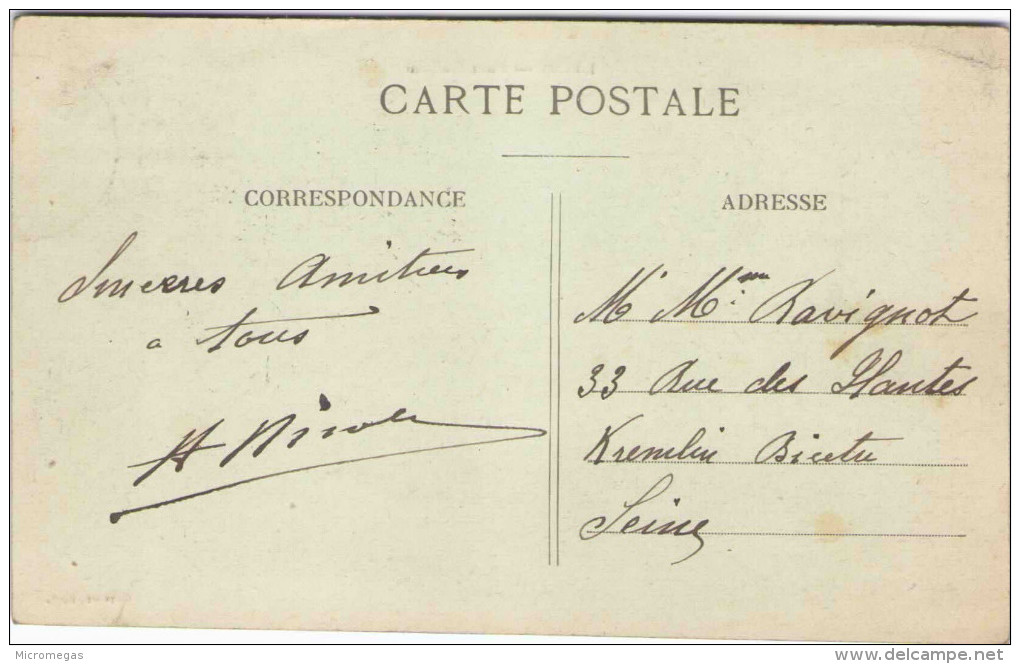 CARTE POSTALE
CORRESPONDANCE
Sincères Amitiés
a tous
ADRESSE
Mr Mme Ravignot
33 Rue des Plantes
Kremlin Bicetre
Seine
Micromegas
www.delcampe.net